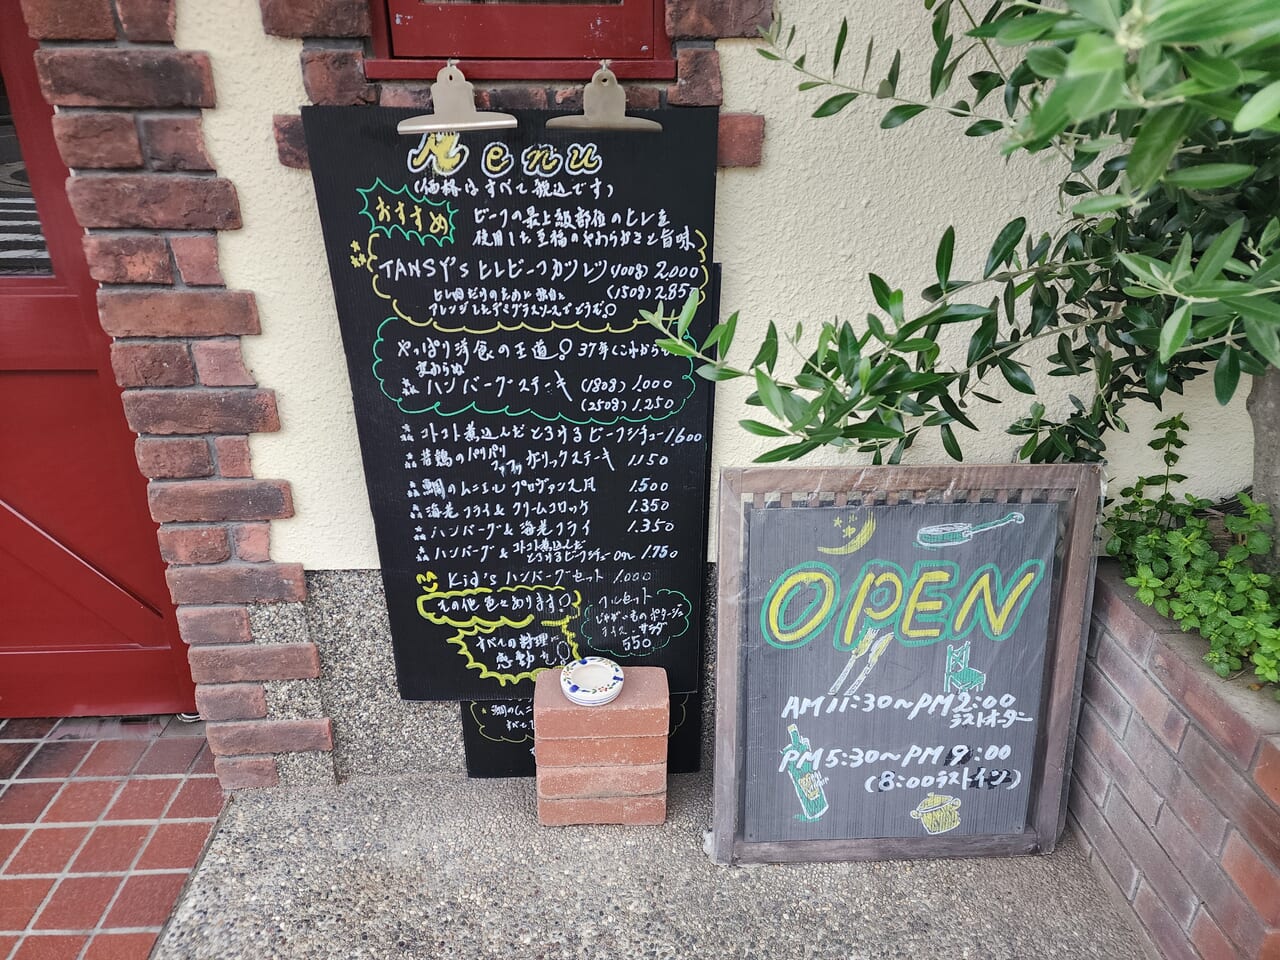 Menu
(価格はすべて税込です)
おすすめ
ビーフの最上級部位のヒレを
使用した至福のやわらかさと旨味
TANSY'S ヒレビーフカツレツ(100g) 2,000
(150g) 2,850
ヒレ肉だけのために独自に
アレンジしたデミグラスソースでどうぞ!
やっぱり洋食の王道! 37年(これからも
変わらぬ
ハンバーグステーキ (180g) 1,000
(250g) 1,250
コトコト煮込んだとろけるビーフシチュー 1,600
若鶏のパリパリ
ガーリックステーキ 1,150
鯛のムニエル プロヴァンス風 1,500
海老フライ&クリームコロッケ 1,350
ハンバーグ&海老フライ 1,350
ハンバーグ&コトコト煮込んだ
とろけるビーフシチュー 1,750
Kid's ハンバーグセット 1,000
その他色々あります!
すべての料理に
感動を!
フルセット
じゃがいものポタージュ
ライス・サラダ
550
鯛のムニ
すべて
OPEN
AM 11:30~PM 2:00
ラストオーダー
PM 5:30~PM 9:00
(8:00ラストイン)